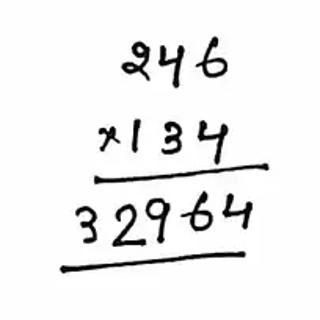 246
×134
32964